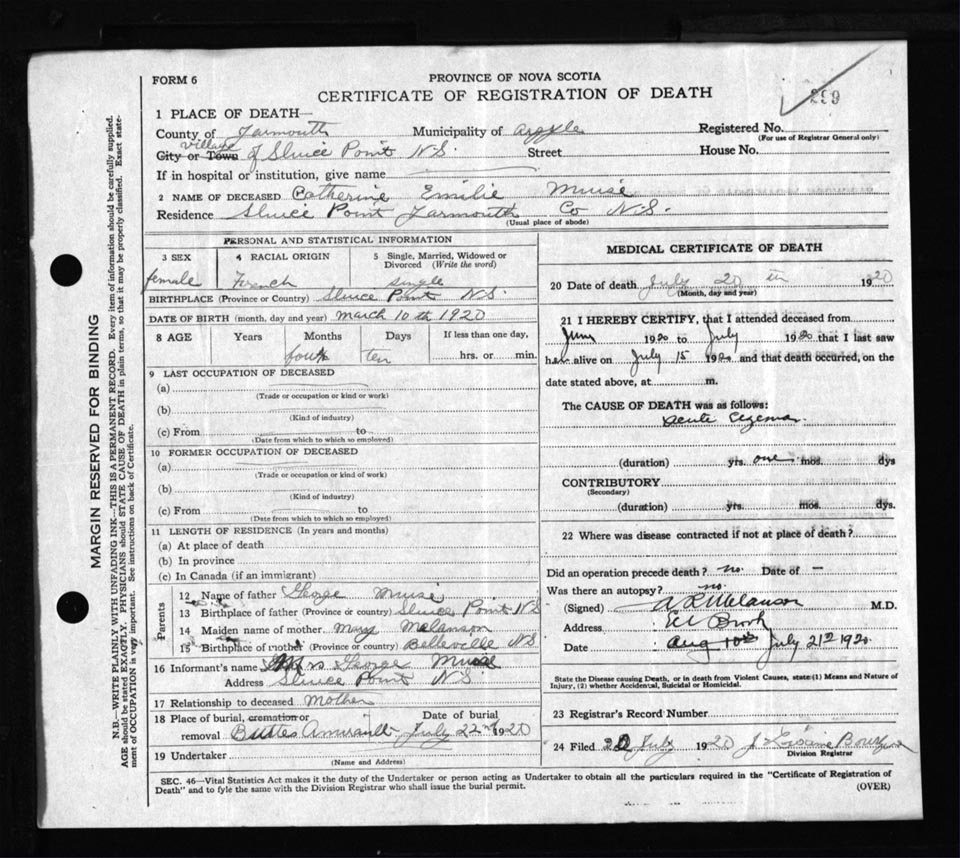 FORM 6
PROVINCE OF NOVA SCOTIA
CERTIFICATE OF REGISTRATION OF DEATH
299
1 PLACE OF DEATH—
County of Yarmouth Municipality of Argyle Registered No.
(For use of Registrar General only)
village
City or Town of Sluice Point N.S. Street House No.
If in hospital or institution, give name
2 NAME OF DECEASED Catherine Emilie Muise
Residence Sluice Point Yarmouth Co N.S.
(Usual place of abode)
PERSONAL AND STATISTICAL INFORMATION
3 SEX 4 RACIAL ORIGIN 5 Single, Married, Widowed or Divorced (Write the word)
female French single
BIRTHPLACE (Province or Country) Sluice Point N.S.
DATE OF BIRTH (month, day and year) March 10th 1920
8 AGE Years Months Days If less than one day,
four ten hrs. or min.
9 LAST OCCUPATION OF DECEASED
(a)
(Trade or occupation or kind or work)
(b)
(Kind of industry)
(c) From to
(Date from which to which so employed)
10 FORMER OCCUPATION OF DECEASED
(a)
(Trade or occupation or kind of work)
(b)
(Kind of industry)
(c) From to
(Date from which to which so employed)
11 LENGTH OF RESIDENCE (In years and months)
(a) At place of death
(b) In province
(c) In Canada (if an immigrant)
Parents
12 Name of father George Muise
13 Birthplace of father (Province or country) Sluice Point N.S
14 Maiden name of mother Mary Melanson
15 Birthplace of mother (Province or country) Belleville N.S
16 Informant's name Mrs George Muise
Address Sluice Point N.S
17 Relationship to deceased Mother
18 Place of burial, cremation or removal Buttes Amirault Date of burial July 22nd 1920
19 Undertaker
(Name and Address)
MEDICAL CERTIFICATE OF DEATH
20 Date of death July 20 th 1920
(Month, day and year)
21 I HEREBY CERTIFY, that I attended deceased from
June 1920 to July 1920 that I last saw
her alive on July 15 1920 and that death occurred, on the
date stated above, at m.
The CAUSE OF DEATH was as follows:
Acute Eczema
(duration) yrs. one mos. dys
CONTRIBUTORY
(Secondary)
(duration) yrs. mos dys.
22 Where was disease contracted if not at place of death?
Did an operation precede death? no. Date of —
Was there an autopsy? no.
(Signed) A R Melanson M.D.
Address Eel Brook
Date Aug 10th July 21st 1920
State the Disease causing Death, or in death from Violent Causes, state (1) Means and Nature of
Injury, (2) whether Accidental, Suicidal or Homicidal.
23 Registrar's Record Number
24 Filed 20 July 1920 J
Division Registrar
SEC. 46—Vital Statistics Act makes it the duty of the Undertaker or person acting as Undertaker to obtain all the particulars required in the "Certificate of Registration of
Death" and to fyle the same with the Division Registrar who shall issue the burial permit. (OVER)
MARGIN RESERVED FOR BINDING
N.B.—WRITE PLAINLY WITH UNFADING INK—THIS IS A PERMANENT RECORD. Every item of information should be carefully supplied.
AGE should be stated EXACTLY. PHYSICIANS should STATE CAUSE OF DEATH in plain terms, so that it may be properly classified. Exact state-
ment of OCCUPATION is very important. See instructions on back of Certificate.